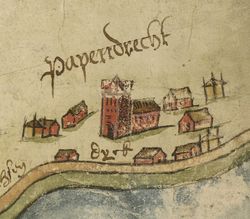 Papendrecht
dyck